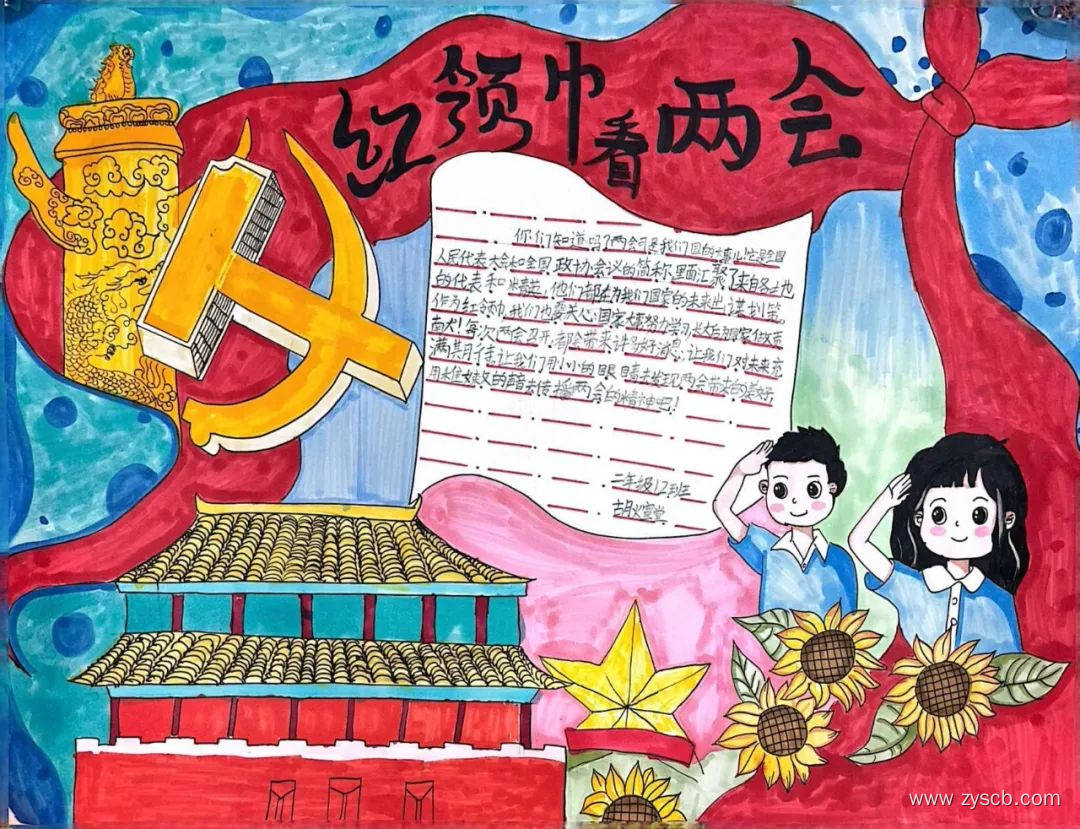 红领巾看两会
你们知道吗?两会可是我们国的大事儿!它是全国
人民代表大会和全国政协会议的简称,里面汇聚了来自各地
的代表和委员,他们都在为我们国家的未来出谋划策。
作为红领巾,我们也要关心国家大事努力学习,长大后为国家做贡
献!每次两会召开,都会带来许多好消息,让我们对未来充
满期待。让我们用小小的眼睛去发现两会带来的美好
用的声音去传播两会的精神吧!
二年级12班
www.zyscb.com